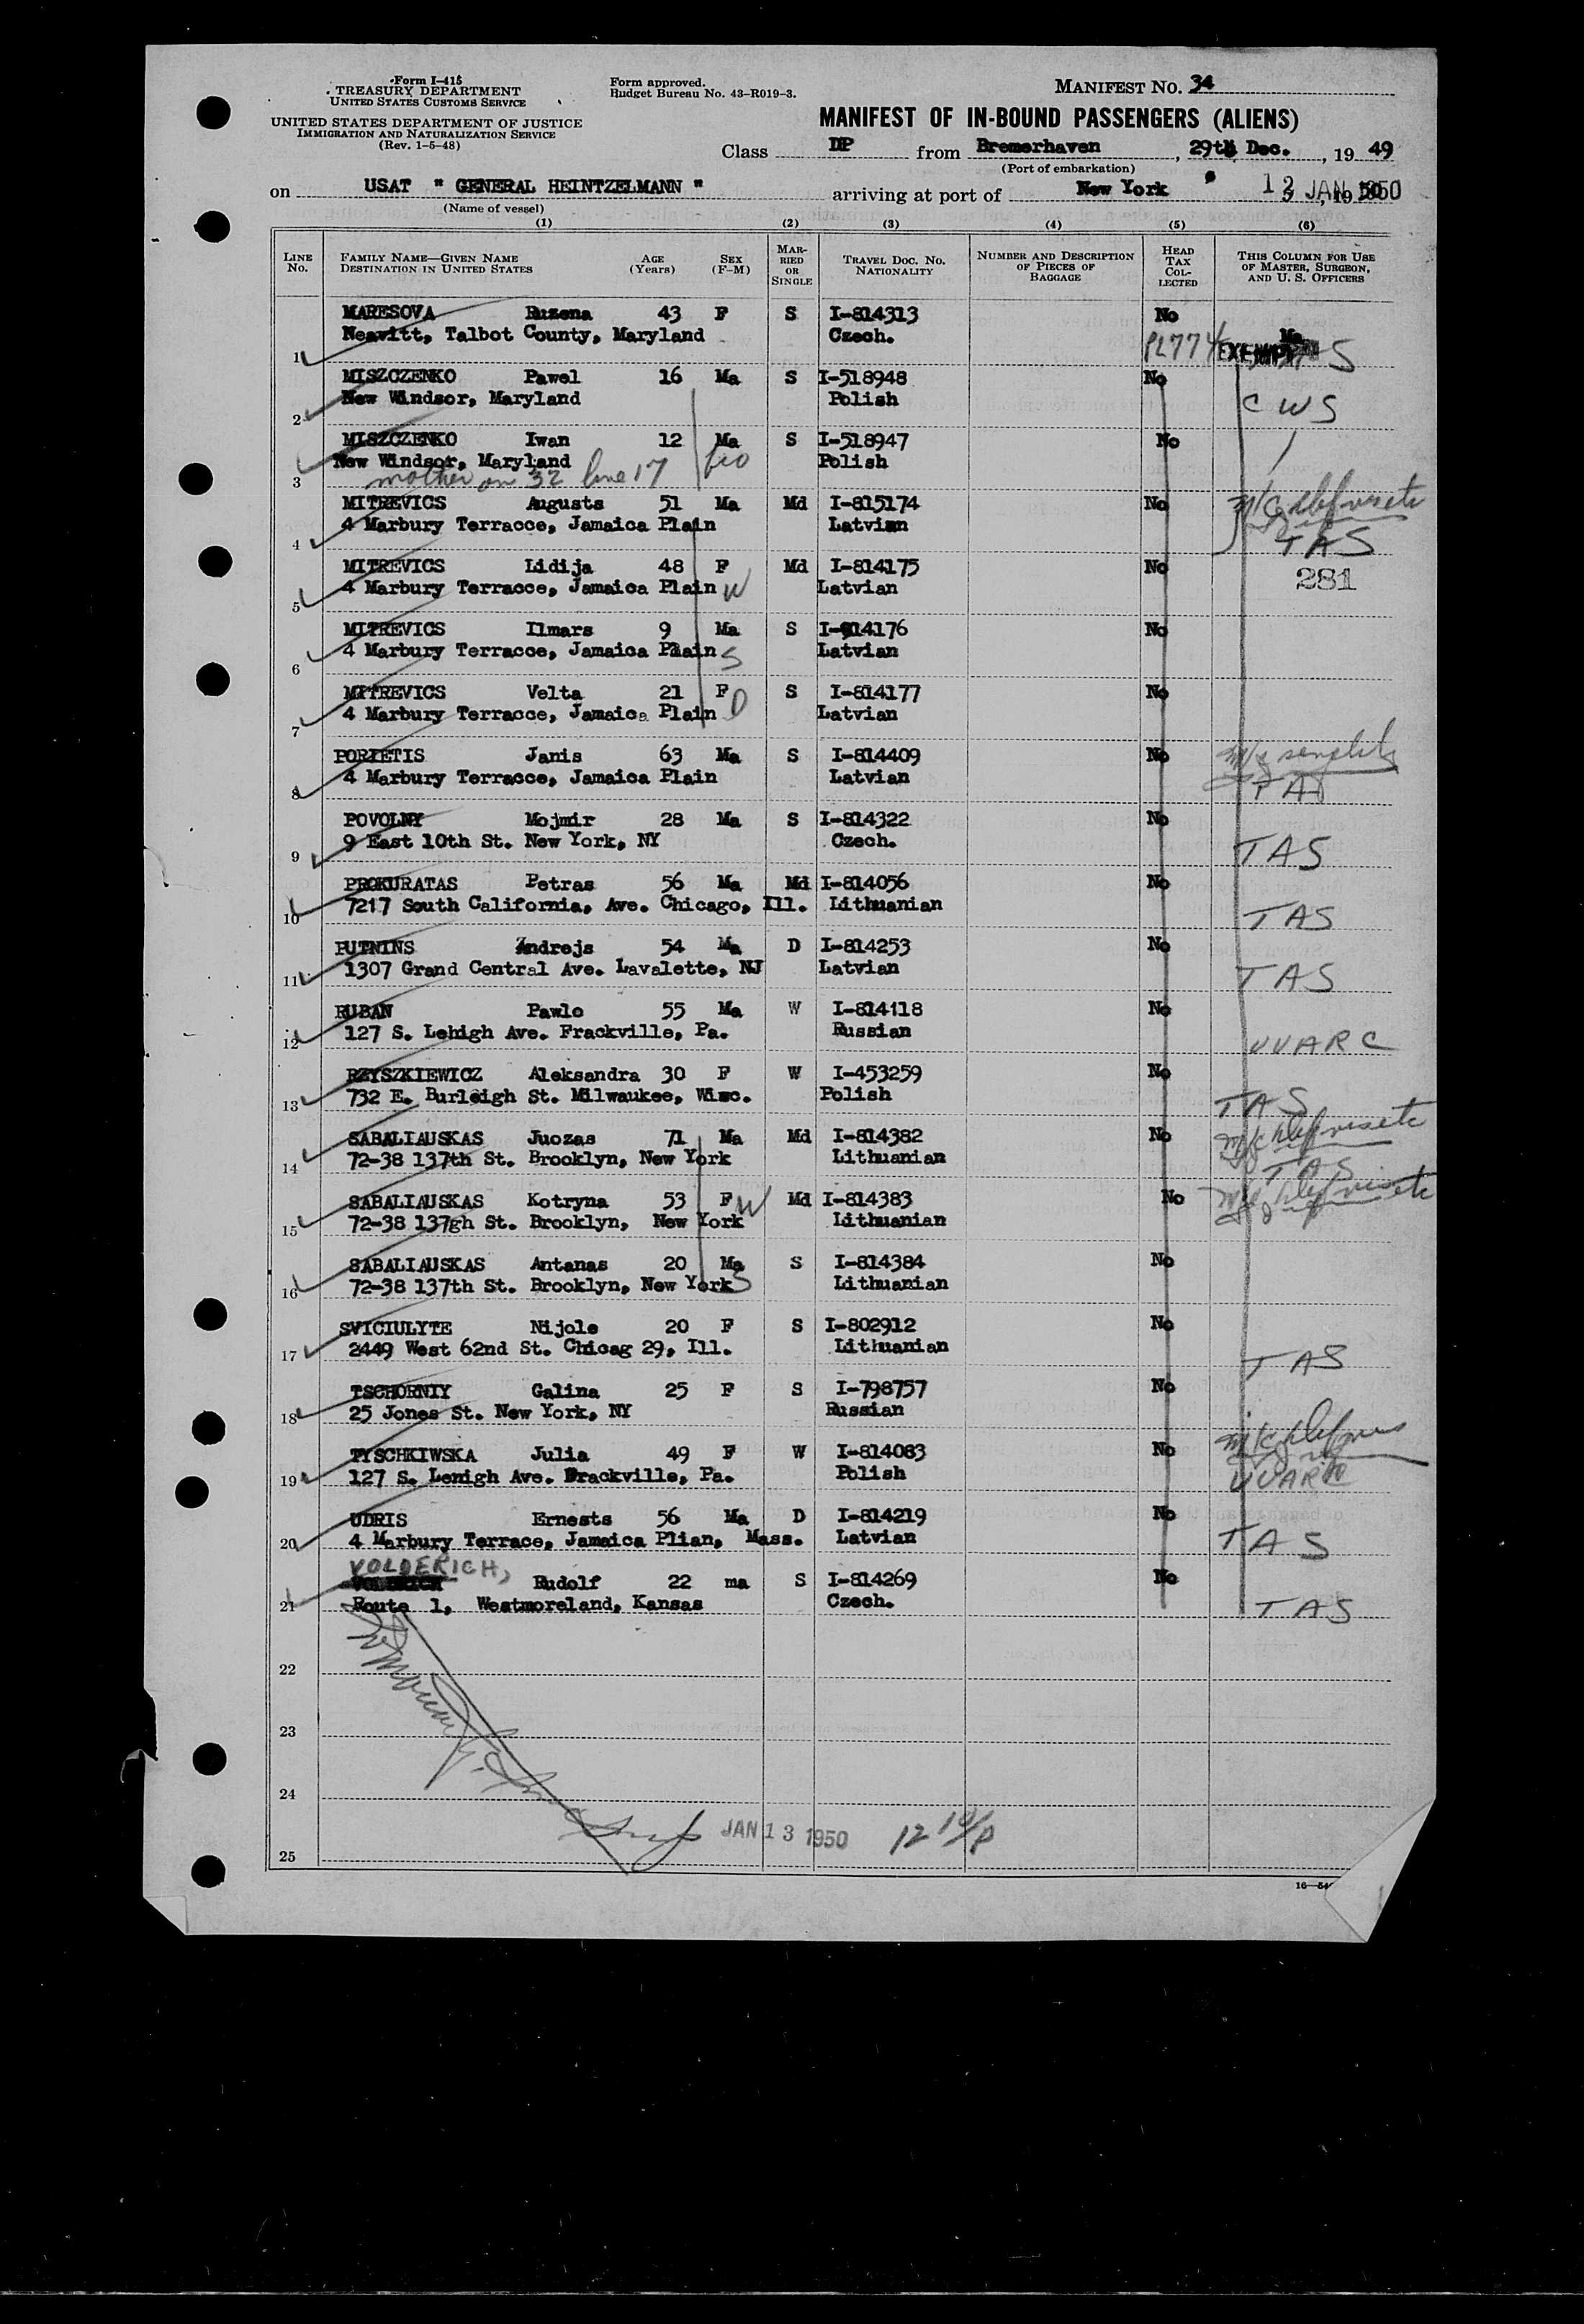 Form I-415
TREASURY DEPARTMENT
UNITED STATES CUSTOMS SERVICE
UNITED STATES DEPARTMENT OF JUSTICE
IMMIGRATION AND NATURALIZATION SERVICE
(Rev. 1-5-48)
Form approved.
Budget Bureau No. 43-R019-3.
MANIFEST NO. 34
MANIFEST OF IN-BOUND PASSENGERS (ALIENS)
Class DP from Bremerhaven, 29th Dec., 19 49
(Port of embarkation)
on USAT " GENERAL HEINTZELMANN " arriving at port of New York 12 JAN 1950
(Name of vessel)
(1) (2) (3) (4) (5) (6)
LINE NO. FAMILY NAME—GIVEN NAME DESTINATION IN UNITED STATES AGE (Years) SEX (F-M) MARRIED OR SINGLE TRAVEL DOC. NO. NATIONALITY NUMBER AND DESCRIPTION OF PIECES OF BAGGAGE HEAD TAX COLLECTED THIS COLUMN FOR USE OF MASTER, SURGEON, AND U. S. OFFICERS
MARESOVA Ruzena 43 F S I-814313 No
1 Neavitt, Talbot County, Maryland Czech. PL774 EXEMPT
MISZCZENKO Pawel 16 Ma S I-518948 No
2 New Windsor, Maryland Polish CWS
MISZCZENKO Iwan 12 Ma S I-518947 No
New Windsor, Maryland Polish
3 mother on 32 line 17
MITREVICS Augusts 51 Ma Md I-815174 No
4 4 Marbury Terracce, Jamaica Plain Latvian TAS
MITREVICS Lidija 48 F Md I-814175 No 281
5 4 Marbury Terracce, Jamaica Plain W Latvian
MITREVICS Ilmars 9 Ma S I-814176 No
6 4 Marbury Terracce, Jamaica Plain S Latvian
MITREVICS Velta 21 F S I-814177 No
7 4 Marbury Terracce, Jamaica Plain D Latvian
PORIETIS Janis 63 Ma S I-814409 No
8 4 Marbury Terracce, Jamaica Plain Latvian
POVOLNY Mojmir 28 Ma S I-814322 No
9 9 East 10th St. New York, NY Czech. TAS
PROKURATAS Petras 56 Ma Md I-814056 No
10 7217 South California, Ave. Chicago, Ill. Lithuanian TAS
PUTNINS Andrejs 54 Ma D I-814253 No
11 1307 Grand Central Ave. Lavalette, NJ Latvian TAS
RUBAN Pawlo 55 Ma W I-814118 No
12 127 S. Lehigh Ave. Frackville, Pa. Russian UUARC
RZYSZKIEWICZ Aleksandra 30 F W I-453259 No
13 732 E. Burleigh St. Milwaukee, Wisc. Polish TAS
SABALIAUSKAS Juozas 71 Ma Md I-814382 No
14 72-38 137th St. Brooklyn, New York Lithuanian TAS
SABALIAUSKAS Kotryna 53 F W Md I-814383 No
15 72-38 137gh St. Brooklyn, New York Lithuanian
SABALIAUSKAS Antanas 20 Ma S I-814384 No
16 72-38 137th St. Brooklyn, New York S Lithuanian
SVICIULYTE Nijole 20 F S I-802912 No
17 2449 West 62nd St. Chicag 29, Ill. Lithuanian TAS
TSCHORNIY Galina 25 F S I-798757 No
18 25 Jones St. New York, NY Russian
TYSCHKIWSKA Julia 49 F W I-814083 No
19 127 S. Lenigh Ave. Frackville, Pa. Polish UUARC
UDRIS Ernests 56 Ma D I-814219 No
20 4 Marbury Terrace, Jamaica Plian, Mass. Latvian TAS
VOLDERICH,
Rudolf 22 ma S I-814269 No
21 Route 1, Westmoreland, Kansas Czech. TAS
22
23
24
JAN 13 1950 12 10/P
25